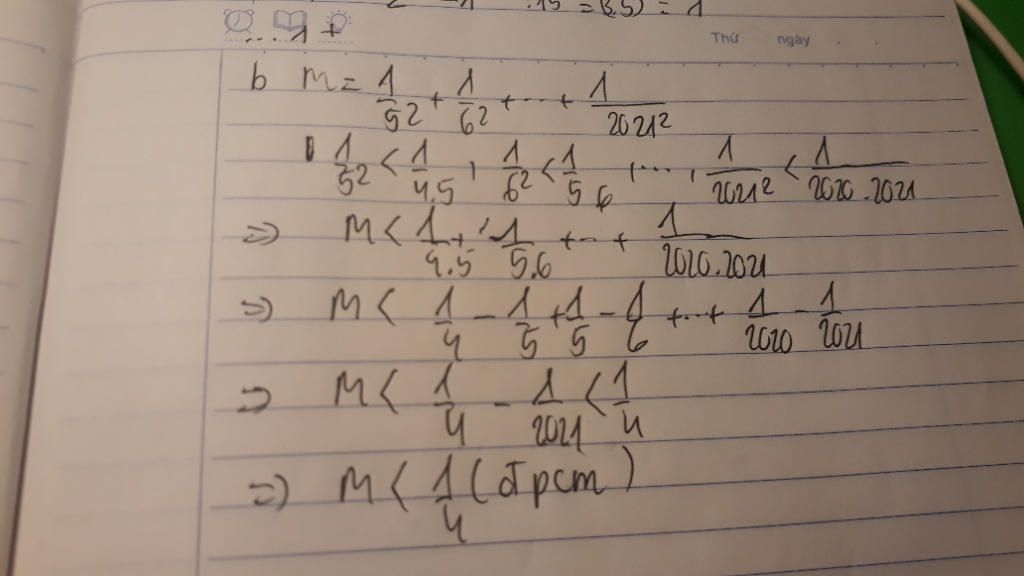 .15 = (3.5) = 1
....1 +
Thứ ngày . .
b M = 1/5² + 1/6² + ... + 1/2021²
1/5² < 1/4.5 , 1/6² < 1/5.6 , ... , 1/2021² < 1/2020.2021
=> M < 1/4.5 + 1/5.6 + ... + 1/2020.2021
=> M < 1/4 - 1/5 + 1/5 - 1/6 + ... + 1/2020 - 1/2021
=> M < 1/4 - 1/2021 < 1/4
=> M < 1/4 (đpcm)